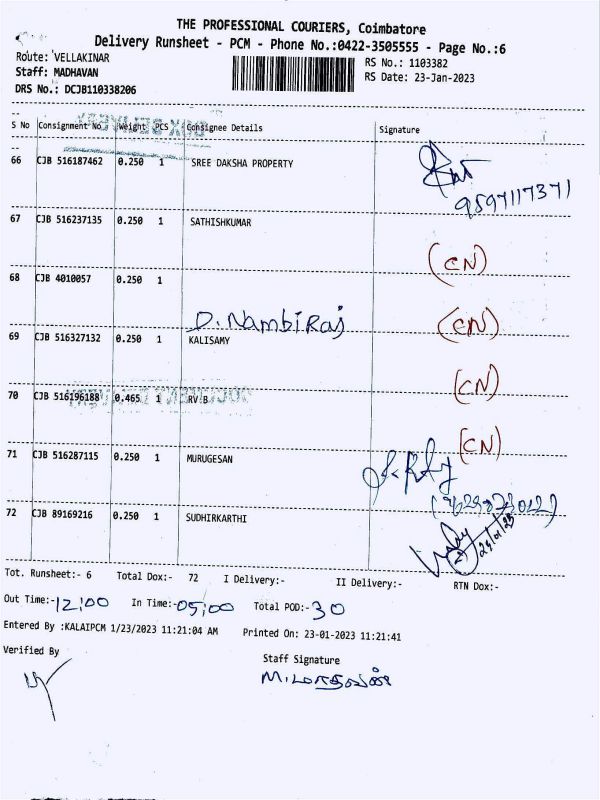 THE PROFESSIONAL COURIERS, Coimbatore
Delivery Runsheet - PCM - Phone No.:0422-3505555 - Page No.:6
Route: VELLAKINAR
RS No.: 1103382
Staff: MADHAVAN
RS Date: 23-Jan-2023
DRS No.: DCJB110338206
S No Consignment No Weight PCS Consignee Details Signature
66 CJB 516187462 0.250 1 SREE DAKSHA PROPERTY
9597117371
67 CJB 516237135 0.250 1 SATHISHKUMAR
(CN)
68 CJB 4010057 0.250 1
D. Nambiraj (CN)
69 CJB 516327132 0.250 1 KALISAMY
(CN)
70 CJB 516196188 0.465 1 RV B
(CN)
71 CJB 516287115 0.250 1 MURUGESAN
72 CJB 89169216 0.250 1 SUDHIRKARTHI
Tot. Runsheet:- 6 Total Dox:- 72 I Delivery:- II Delivery:- RTN Dox:-
Out Time:- 12:00 In Time:- 05:00 Total POD:- 30
Entered By :KALAIPCM 1/23/2023 11:21:04 AM Printed On: 23-01-2023 11:21:41
Verified By
Staff Signature
M.மாதவன்